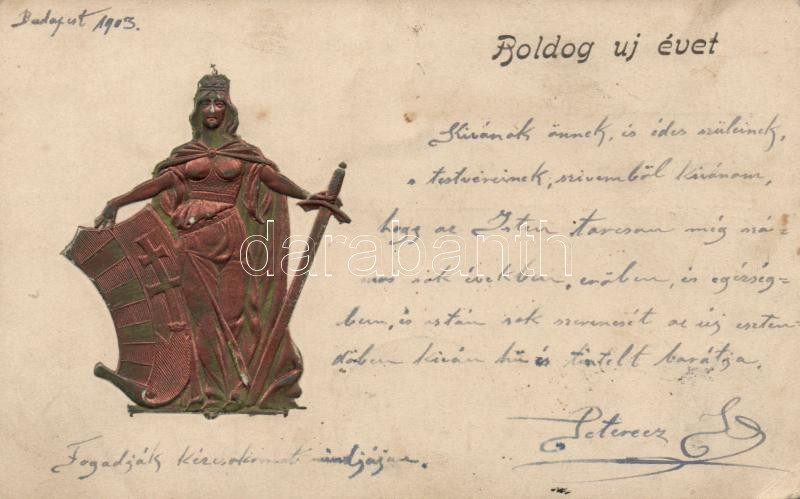 Budapest 1903.
Boldog uj évet
Kivánok önnek, is édes szüleinek,
s testvéreinek, szivemből kivánom,
hogy az Isten tarcson még szá-
mos sok években, erőben, és egézség-
ben, és istán sok szerencsét az új eszten-
dőben kiván hű és tintelt barátja.
Peterecz
Fogadják kézcsokomat
darabanth